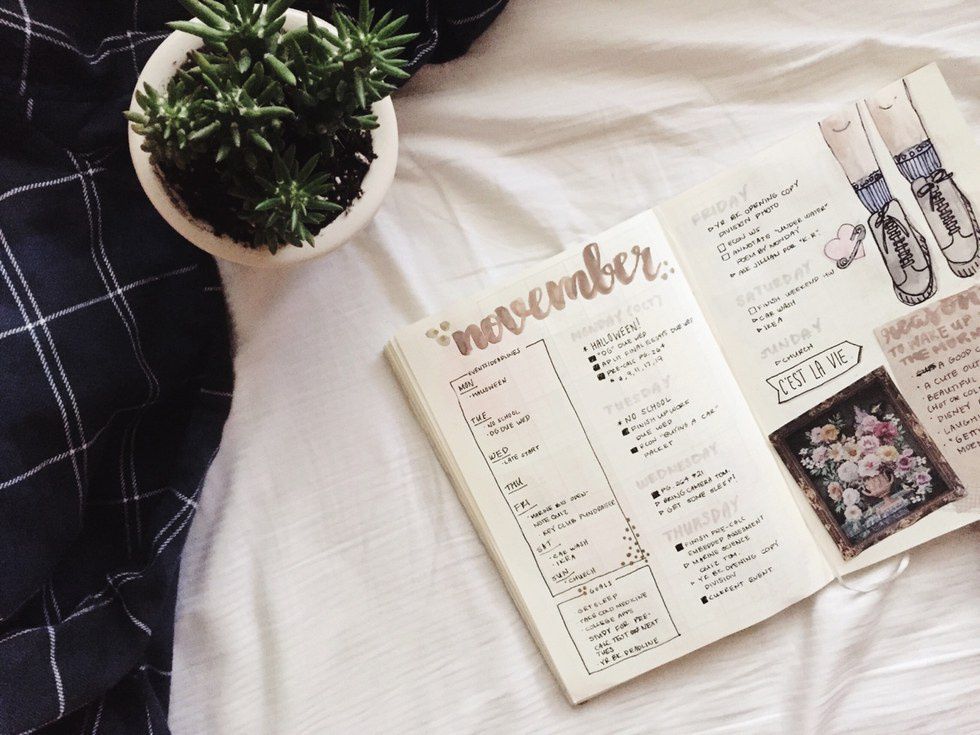 november
EVENTS/DEADLINES
MON
·HALLOWEEN
TUE
·NO SCHOOL
·OG DUE WED
WED
·LATE START
THU
FRI
·MARINE BIO OPEN-
NOTE QUIZ
·KEY CLUB FUNDRAISER
SAT
·CAR WASH
·IKEA
SUN
·CHURCH
GOALS
GET SLEEP
TAKE COLD MEDICINE
·COLLEGE APPS
STUDY FOR PRE-
CALC TEST NEXT
TUES
·YR BK DEADLINE
MONDAY (OCT)
* HALLOWEEN!
"OG" DUE WED
AP LIT FINAL ESSAYS DUE WED
PRE-CALC PG. 264
# 2, 9, 11, 17, 19
TUESDAY
* NO SCHOOL
FINISH UP WORK
DUE WED
ECON "BUYING A CAR"
PACKET
WEDNESDAY
PG. 264 #21
BRING CAMERA TOM.
GET SOME SLEEP!
THURSDAY
FINISH PRE-CALC
EMBEDDED ASSESSMENT
MARINE SCIENCE
QUIZ TOM.
YR BK OPENING COPY
DIVISION
CURRENT EVENT
FRIDAY
YR BK OPENING COPY
DIVISION PHOTO
ECON WS
ANNOTATE "UNDER WATER"
POEM BY MONDAY
ASK JILLIAN FOR "K.R."
SATURDAY
FINISH WEEKEND HW
CAR WASH
IKEA
SUNDAY
CHURCH
C'EST LA VIE
reasons
TO WAKE UP
THE MOR
A GOOD
·A CUTE OUT
BEAUTIFUL
(HOT OR COL
·DISNEY
LAUGH
"GETT
MOR